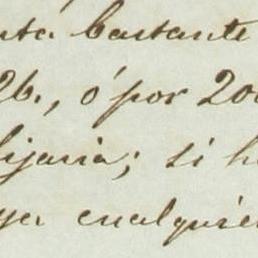 nta bastante
26., ó por 200
ijaria; si h
ya cualquie